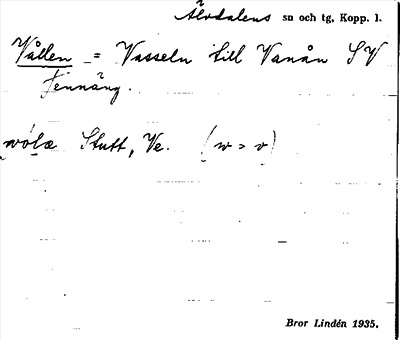 Älvdalens sn och tg, Kopp. l.
Vållen = Vasseln till Vanån SV
Fennäng.
wo̊læ Stutt, Ve. (w = v)
Bror Lindén 1935.